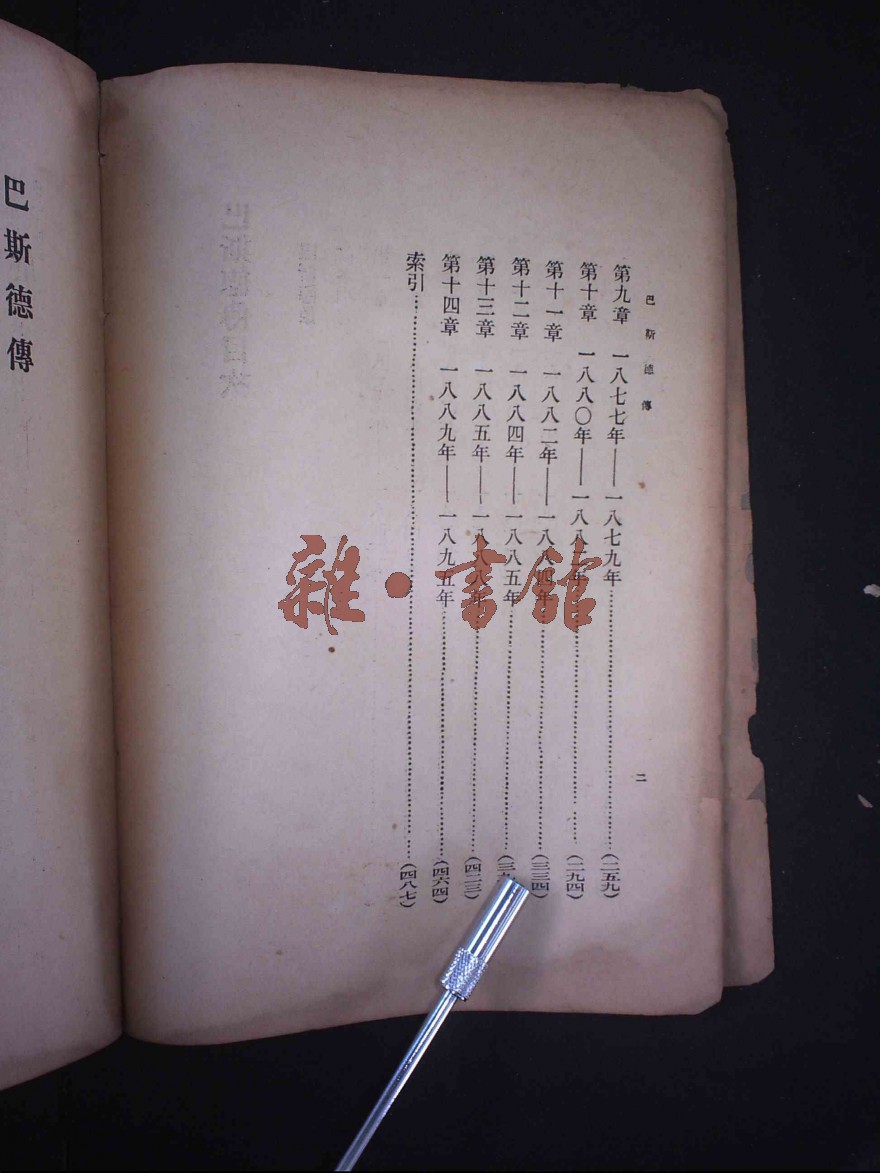 巴斯德傳
二
第九章 一八七七年——一八七九年……(二五九)
第十章 一八八〇年——一八八二年……(二九四)
第十一章 一八八二年——一八八四年……(三三四)
第十二章 一八八四年——一八八五年……(三
第十三章 一八八五年——一八八八年……(四二三)
第十四章 一八八九年——一八九五年……(四六四)
索引……(四八七)
巴斯德傳
雜·書館